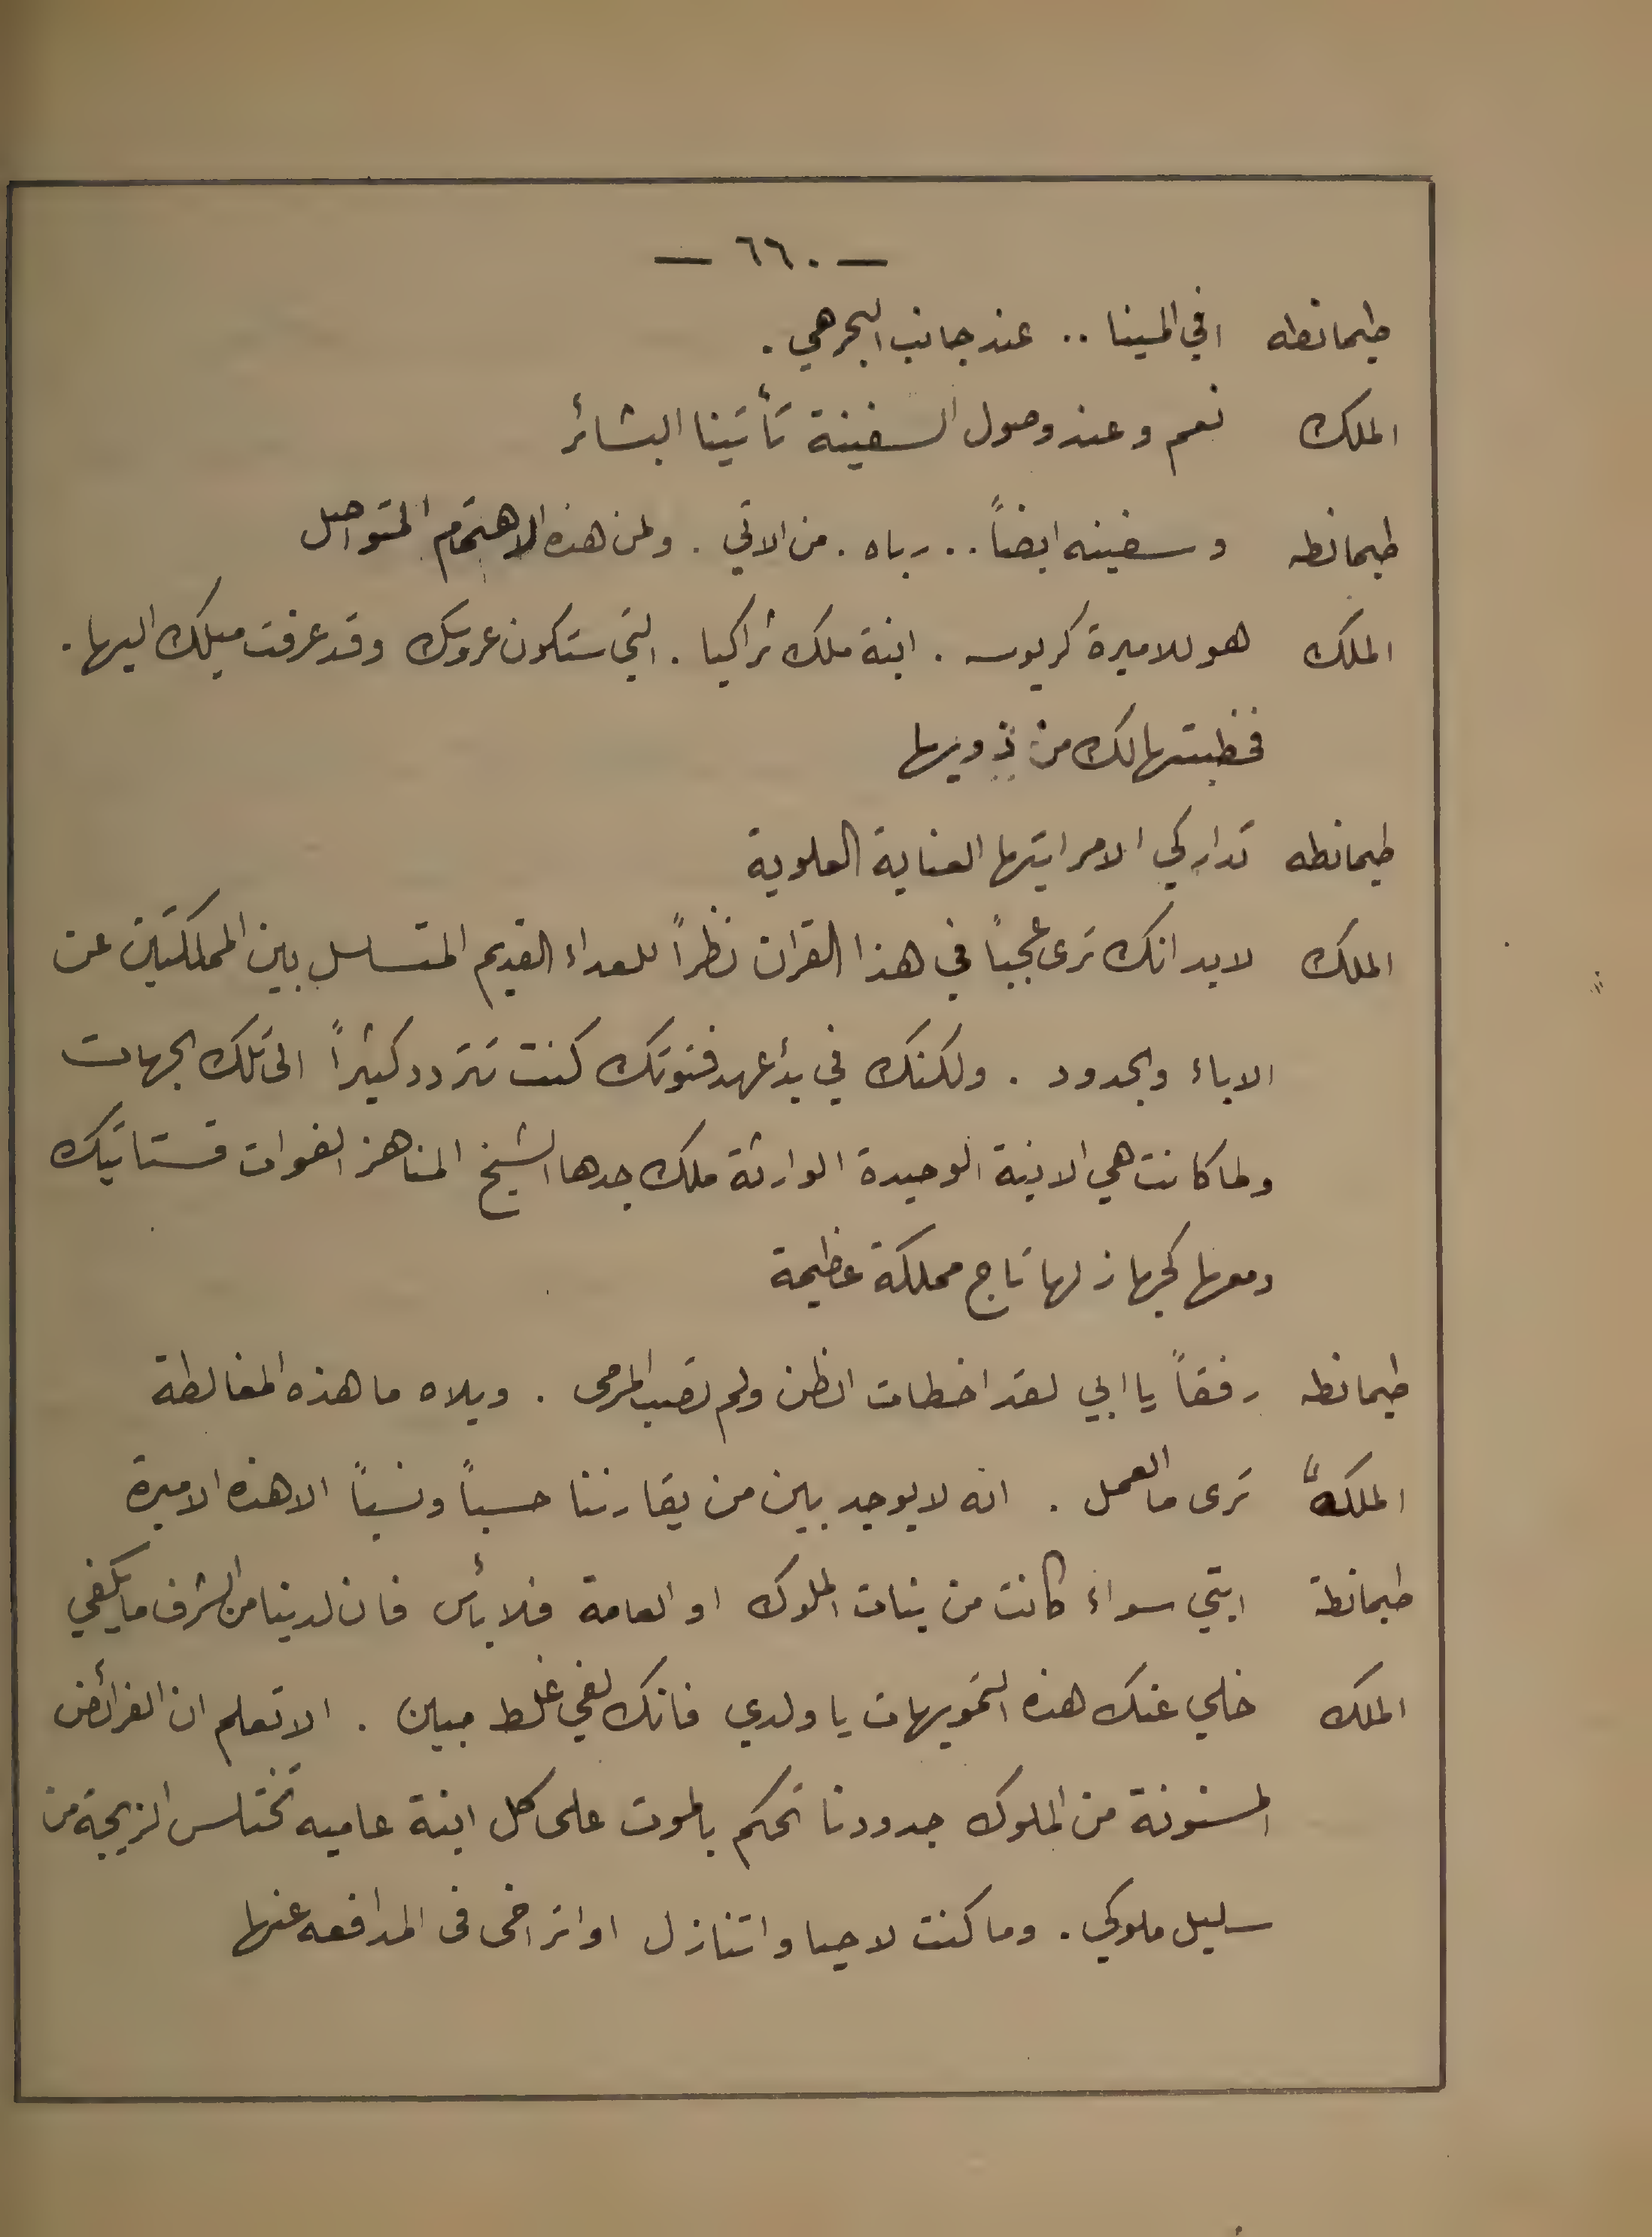 — ٦٦٠ —
طيمانطه افي المينا .. عند جانب البحر هي .
الملك نعم وعند وصول السفينة تأتينا البشائر
طيمانطه وسفينه ايضاً .. رباه . من الاتي . ولمن هذه الاهتمام المتواصل
الملك هو للاميرة كريوسه . ابنة ملك ثراكيا . التي ستكون عروسك وقد عرفت ميلك اليها .
فخطبتها لك من ذويها
طيمانطه تداركي الامر ايتها العناية العلوية
الملك لابد انك ترى عجباً في هذا القران نظراً للعداء القديم المتسلسل بين المملكتين عن
الاباء والجدود . ولكنك في بدأ عهد فتوتك كنت تتردد كثيراً الى تلك الجهات
ولما كانت هي الابنة الوحيدة الوارثة ملك جدها الشيخ المناهز الفوات فستاتيك
ومعها كجهاز لها تاج مملكة عظيمة
طيمانطه رفقاً يا ابي لقد اخطات الظن ولم تصب المرمى . ويلاه ما هذه المغالطة
الملك ترى ما العمل . انه لا يوجد بين من يقارننا حسباً ونسباً الا هذه الاميرة
طيمانطة ابتي سواء كانت من بنات الملوك او العامة فلا بأس فان لدينا من الشرف ما يكفي
الملك خلي عنك هذه التمويهات يا ولدي فانك لفي غلط مبين . الا تعلم ان الفرائض
المسنونة من الملوك جدودنا تحكم بالموت على كل ابنة عاميه تختلس الزيجة من
سليل ملوكي . وما كنت لاحيا واتنازل او اتراخى فى المدافعه عنها